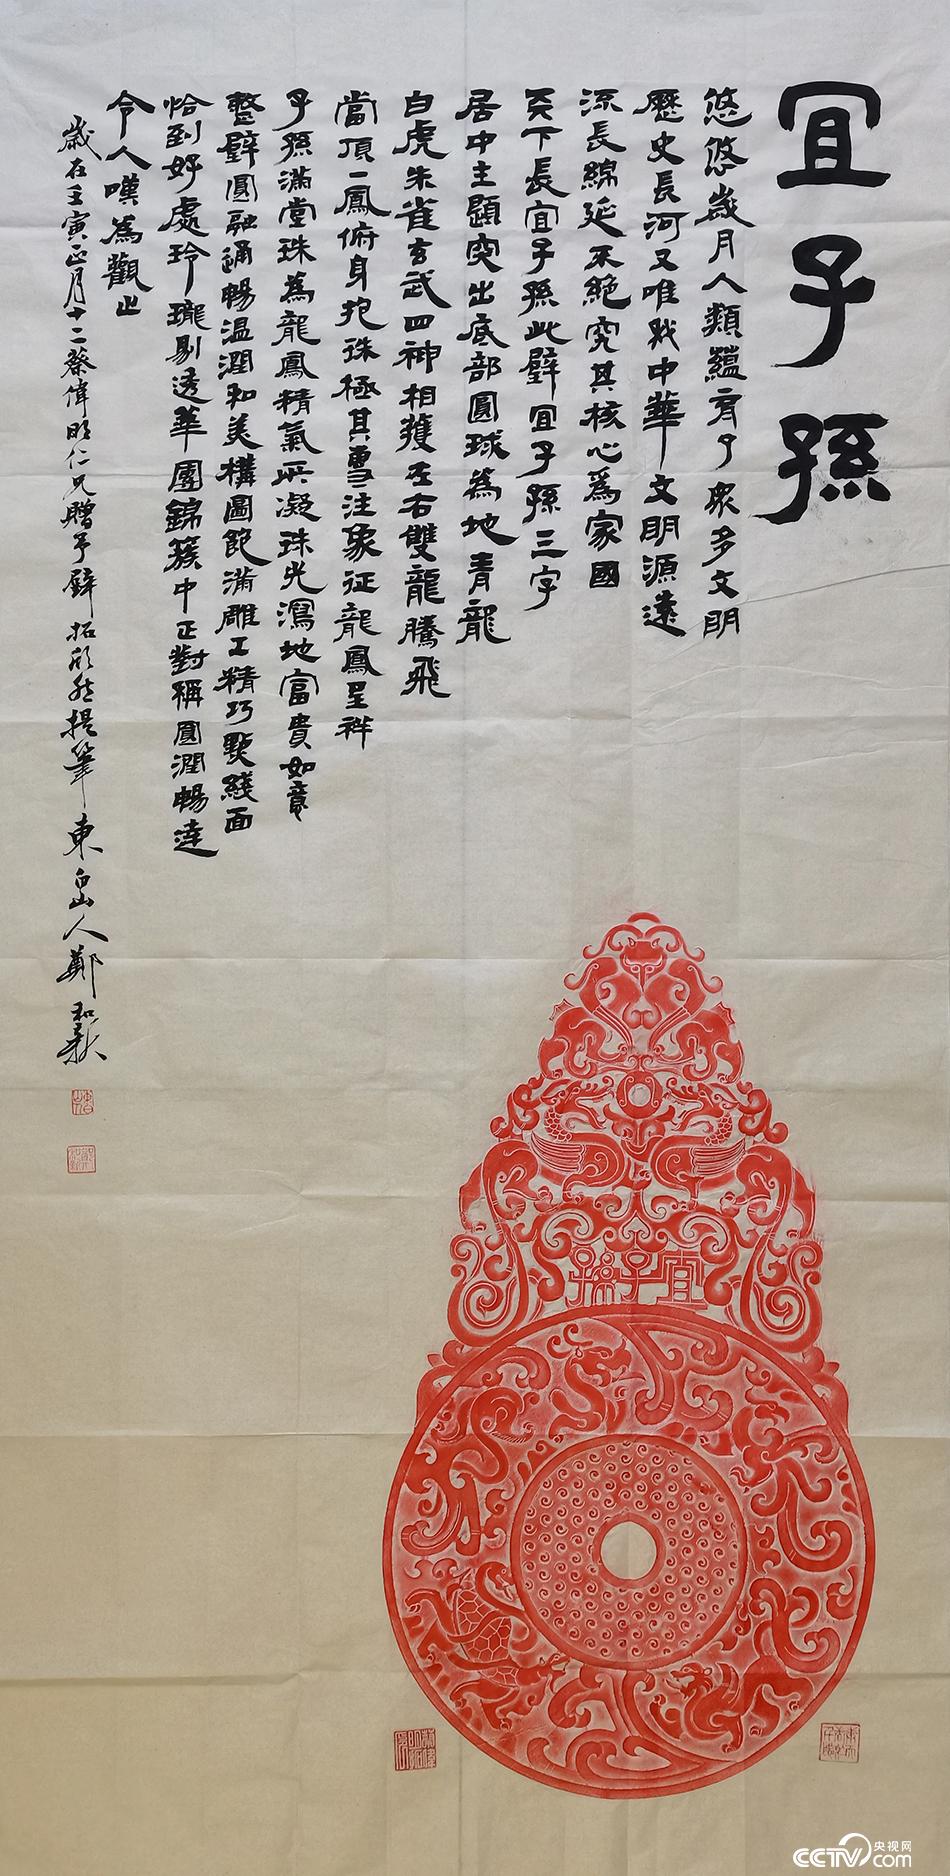 宜子孫
悠悠歲月人類蘊育了眾多文明
歷史長河又唯我中華文明源遠
流長綿延不絕究其核心為家國
天下長宜子孫此璧宜子孫三字
居中主題突出底部圓球為地青龍
白虎朱雀玄武四神相護左右雙龍騰飛
當頂一鳳俯身抱珠極其專注象征龍鳳呈祥
子孫滿堂珠為龍鳳精氣所凝珠光瀉地富貴如意
整璧圓融通暢温潤和美構圖飽滿雕工精巧點綫面
恰到好處玲瓏剔透華團錦簇中正對稱圓潤暢達
令人嘆為觀止
歲在壬寅正月十二蔡偉明仁兄贈予璧拓欣然提筆東白山人鄭和新
宜子孫
CCTV.com
央视网